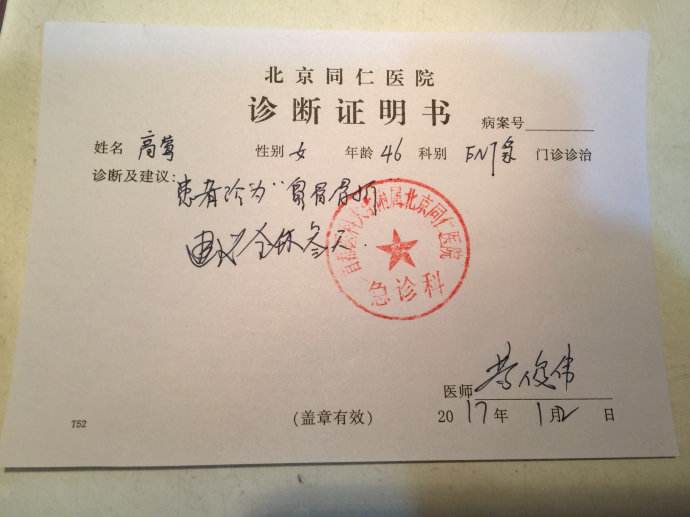 北京同仁医院
诊断证明书
病案号
姓名 高莺 性别 女 年龄 46 科别 ENT急 门诊诊治
诊断及建议:
患者诊为"鼻骨骨折
建议全休叁天.
首都医科大学附属北京同仁医院
急诊科
医师 俊伟
(盖章有效) 2017年1月2日
752